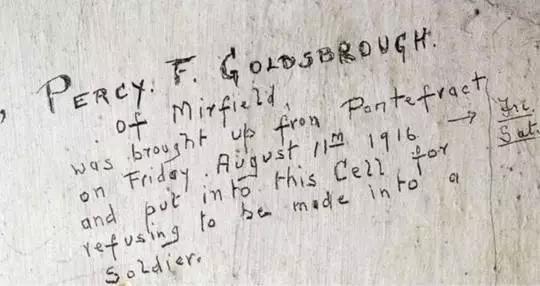 PERCY. F. GOLDSBROUGH.
of Mirfield,
was brought up from Pontefract
on Friday August 11th 1916 → Fri.
and put into this Cell for Sat.
refusing to be made into a
Soldier.